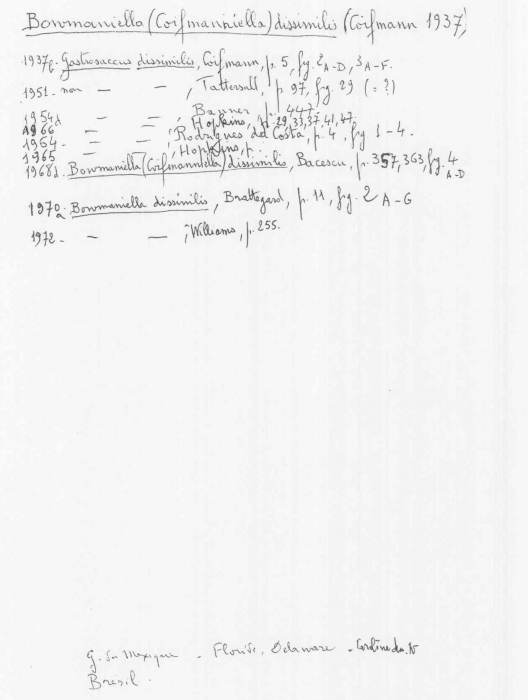 Bowmaniella (Coifmanniella) dissimilis (Coifmann 1937)
1937f. Gastrosaccus dissimilis, Coifmann, p. 5, fig. 2 A-D, 3 A-F.
1951. non — — , Tattersall, p. 97, fig. 29 (= ?)
1954d — — , Banner, p. 447.
1966 — — , Hopkins, p. 29, 33, 37, 41, 47.
1964 - — — , Rodrigues da Costa, p. 4, fig 1-4.
1965 — — , Hopkins, p.
1968d. Bowmaniella (Coifmanniella) dissimilis, Bacescu, p. 357, 363, fig. 4 A-D
1970a. Bowmaniella dissimilis, Brattegard, p. 11, fig. 2 A-G
1972 - — — , Williams, p. 255.
G. du Mexique - Floride, Delaware - Caroline du N
Bresil.